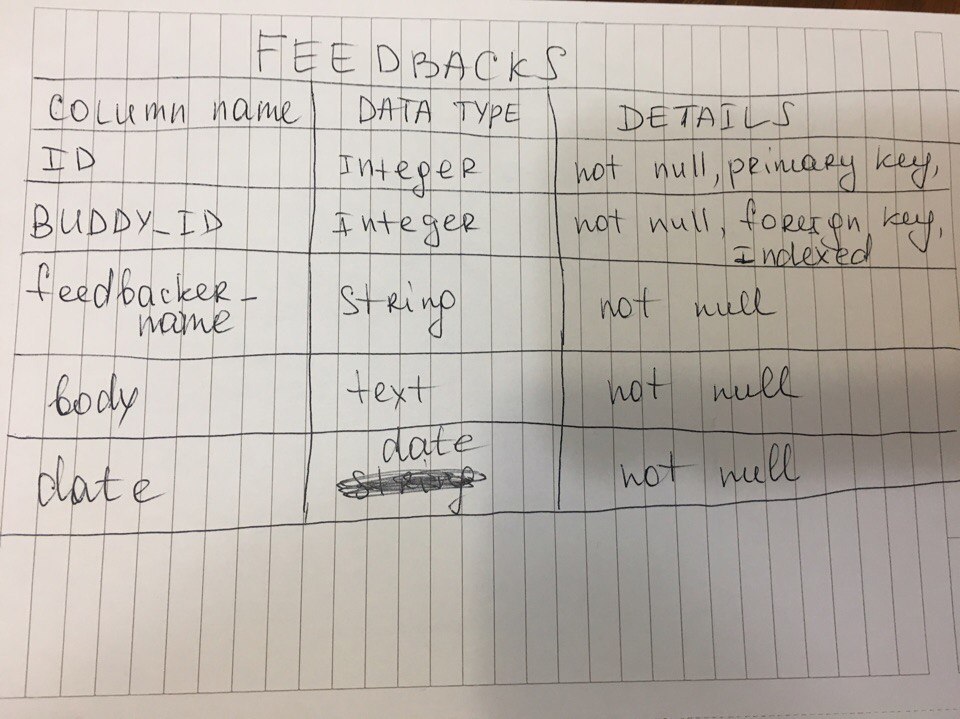 FEEDBACKS
COLUMN name DATA TYPE DETAILS
ID Integer not null, primary key,
BUDDY_ID Integer not null, foreign key,
Indexed
feedbacker_ String not null
name
body text not null
date
date string not null